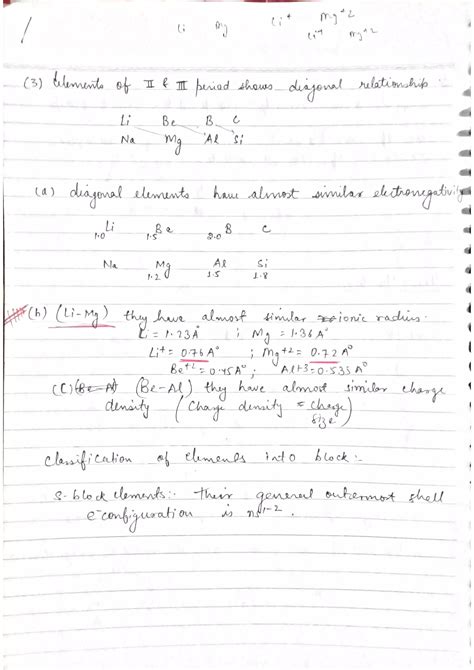 Li Mg Li+ Mg+2
Li+ Mg+2
(3) Elements of II & III period shows diagonal relationship :-
Li Be B C
Na Mg Al Si
(a) diagonal elements have almost similar electronegativity
1.0 Li 1.5 Be 2.0 B C
Na Mg 1.2 Al 1.5 Si 1.8
(b) (Li-Mg) they have almost similar ionic radius.
Li = 1.23A° ; Mg = 1.36A°
Li+ = 0.76A° ; Mg+2 = 0.72A°
Be+2 = 0.45A° ; Al+3 = 0.535A°
(C) (Be-Al) (Be-Al) they have almost similar charge
density (Charge density = charge/size)
Classification of elements into block :-
s-block elements:- their general outermost shell
e- configuration is ns1-2.